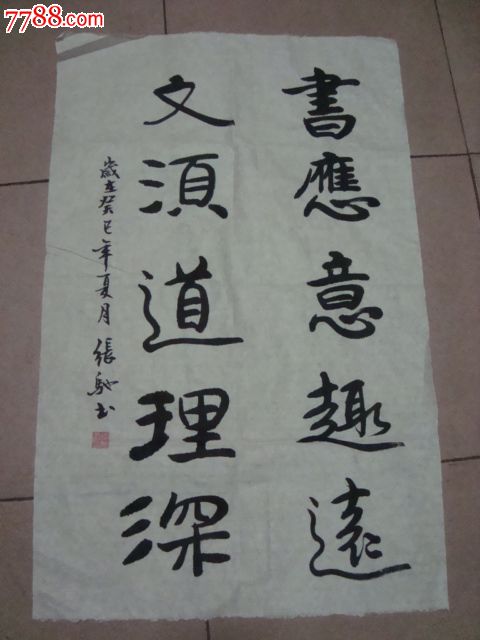 7788.com
書應意趣遠
文須道理深
歲在癸巳年夏月 張馳書